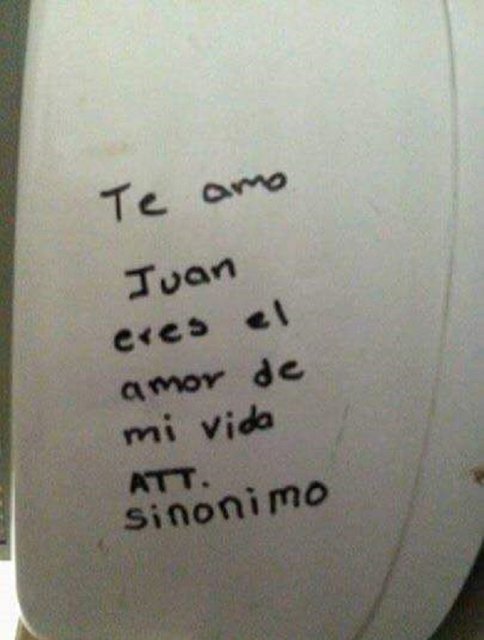 Te amo
Juan
eres el
amor de
mi vida
ATT.
sinonimo